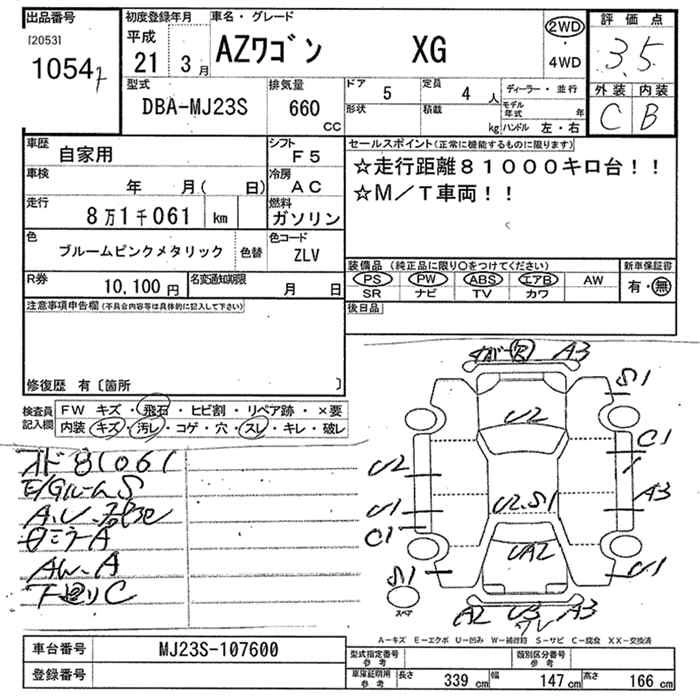 出品番号
[2053]
1054
初度登録年月
平成
21 3月
車名・グレード
AZワゴン XG
2WD
・
4WD
評価点
3.5
外装 内装
C B
型式
DBA-MJ23S
排気量
660
CC
ドア
5
定員
4 人
形状
積載
kg
ディーラー・並行
モデル年式 年
ハンドル 左・右
車歴
自家用
シフト
F5
車検
年 月( 日)
冷房
AC
走行
8万1千061 km
燃料
ガソリン
色
ブルームピンクメタリック
色替
色コード
ZLV
R券
10,100円
名変通知期限
月 日
セールスポイント(正常に機能するものに限ります)
☆走行距離81000キロ台!!
☆M/T車両!!
装備品(純正品に限り○をつけてください)
新車保証書
PS PW ABS エアB AW
有・無
SR ナビ TV カワ
後日品
注意事項申告欄(不具合内容等は具体的に記入して下さい)
修復歴 有〔箇所 〕
検査員
記入欄
FW キズ・飛石・ヒビ割・リペア跡・×要
内装・キズ・汚レ・コゲ・穴・スレ・キレ・破レ
81061
E/Gルーム S
A.U
ミラーA
AW-A
下廻りC
A3
S1
U2
C1
U2
U1
U2.S1
A3
C1
UA2
U1
S1
スペア
A2 U3 A3
A-キズ E-エクボ U-凹み W-補修跡 S-サビ C-腐食 XX-交換済
車台番号
MJ23S-107600
登録番号
型式指定番号
参考
類別区分番号
参考
車庫証明用
参考
長さ 339 cm 幅 147 cm 高さ 166 cm